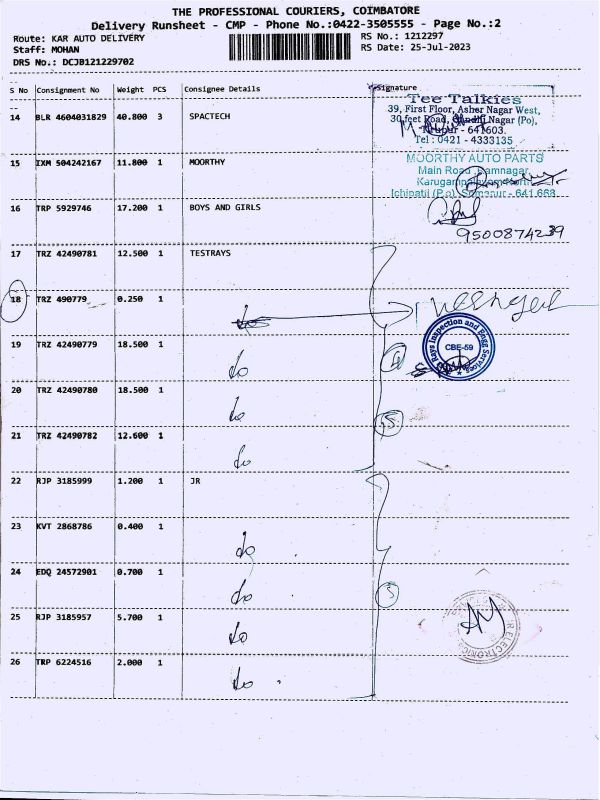 THE PROFESSIONAL COURIERS, COIMBATORE
Delivery Runsheet - CMP - Phone No.:0422-3505555 - Page No.:2
Route: KAR AUTO DELIVERY RS No.: 1212297
Staff: MOHAN RS Date: 25-Jul-2023
DRS No.: DCJB121229702
S No Consignment No Weight PCS Consignee Details Signature
Tee Talkies
39, First Floor, Asher Nagar West,
14 BLR 4604031829 40.800 3 SPACTECH 30 feet Road, Gandhi Nagar (Po),
Tirupur - 641603.
Tel : 0421 - 4333135
15 IXM 504242167 11.800 1 MOORTHY MOORTHY AUTO PARTS
Main Road Ramnagar,
Ichipatti (P.o)
16 TRP 5929746 17.200 1 BOYS AND GIRLS
9500874239
17 TRZ 42490781 12.500 1 TESTRAYS
18 TRZ 490779 0.250 1 do
Rays Inspection and Engg Services
CBE-59
19 TRZ 42490779 18.500 1 do 4
20 TRZ 42490780 18.500 1 do 5
21 TRZ 42490782 12.600 1 do
22 RJP 3185999 1.200 1 JR
23 KVT 2868786 0.400 1 do
24 EDQ 24572901 0.700 1 do 5
25 RJP 3185957 5.700 1 do
ELECTRONICS
26 TRP 6224516 2.000 1 do